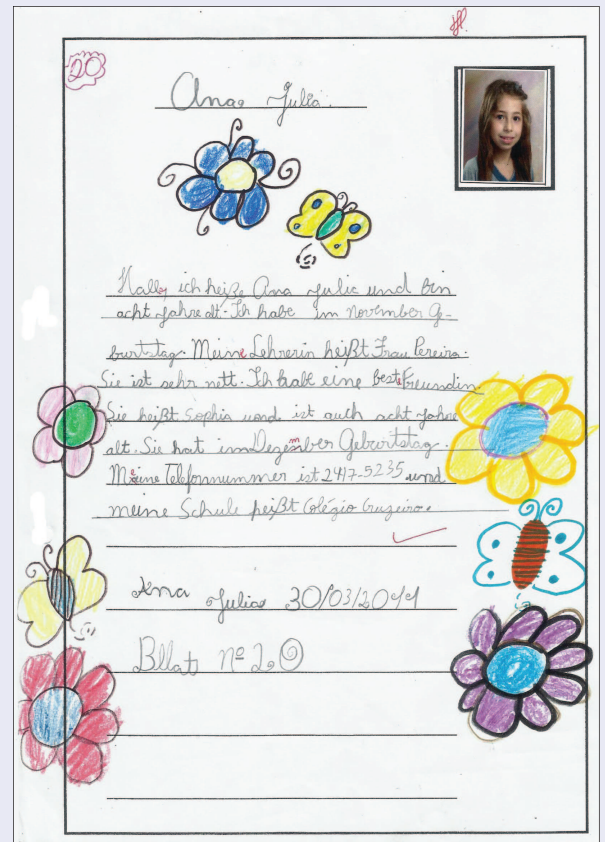 20
Ana Julia
Hallo, ich heiße Ana Julia und bin
acht Jahre alt. Ich habe im November Ge-
burtstag. Meine Lehrerin heißt Frau Pereira.
Sie ist sehr nett. Ich habe eine beste Freundin.
Sie heißt Sophia und ist auch acht Jahre
alt. Sie hat im Dezember Geburtstag.
Meine Telefonnummer ist 2417-5235 und
meine Schule heißt Colégio Cruzeiro.
Ana Julia 30/03/2011
Bllatt nº 20